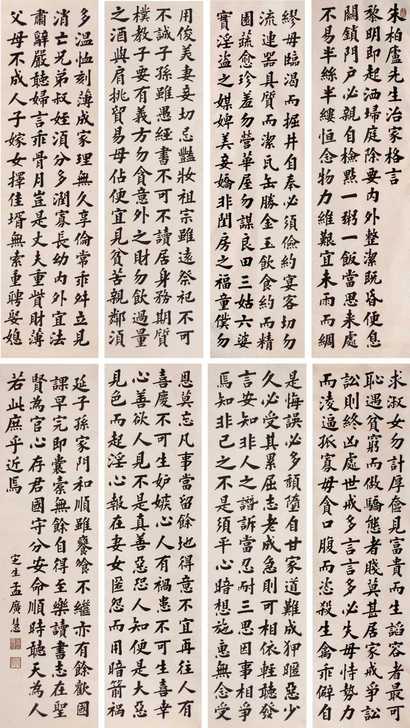 朱柏廬先生治家格言
黎明即起洒埽庭除要内外整潔既昏便息
關鎖門户必親自檢點一粥一飯當思來處
不易半絲半縷恒念物力維艱宜未雨而綢
繆毋臨渴而掘井自奉必須儉約宴客切勿
流連器具質而潔瓦缶勝金玉飲食約而精
園蔬愈珍羞勿營華屋勿謀良田三姑六婆
實淫盜之媒婢美妾嬌非閨房之福童僕勿
用俊美妻妾切忌豔妝祖宗雖遠祭祀不可
不誠子孫雖愚經書不可不讀居身務期質
樸教子要有義方勿貪意外之財勿飲過量
之酒與肩挑貿易毋佔便宜見貧苦親鄰須
多温恤刻薄成家理無久享倫常乖舛立見
消亡兄弟叔姪須分多潤寡長幼内外宜法
肅辭嚴聽婦言乖骨肉豈是丈夫重貲財薄
父母不成人子嫁女擇佳壻無索重聘娶媳
求淑女勿計厚奩見富貴而生諂容者最可
恥遇貧窮而做驕態者賤莫甚居家戒爭訟
訟則終凶處世戒多言言多必失毋恃勢力
而凌逼孤寡毋貪口腹而恣殺生禽乖僻自
是悔誤必多頹墮自甘家道難成狎暱惡少
久必受其累屈志老成急則可相依輕聽發
言安知非人之譖訴當忍耐三思因事相爭
焉知非己之不是須平心暗想施惠無念受
恩莫忘凡事當留餘地得意不宜再往人有
喜慶不可生妒嫉心人有禍患不可生喜幸
心善欲人見不是真善惡恐人知便是大惡
見色而起淫心報在妻女匿怨而用暗箭禍
延子孫家門和順雖饔飧不繼亦有餘歡國
課早完即囊橐無餘自得至樂讀書志在聖
賢為官心存君國守分安命順時聽天為人
若此庶乎近焉
定生孟廣慧